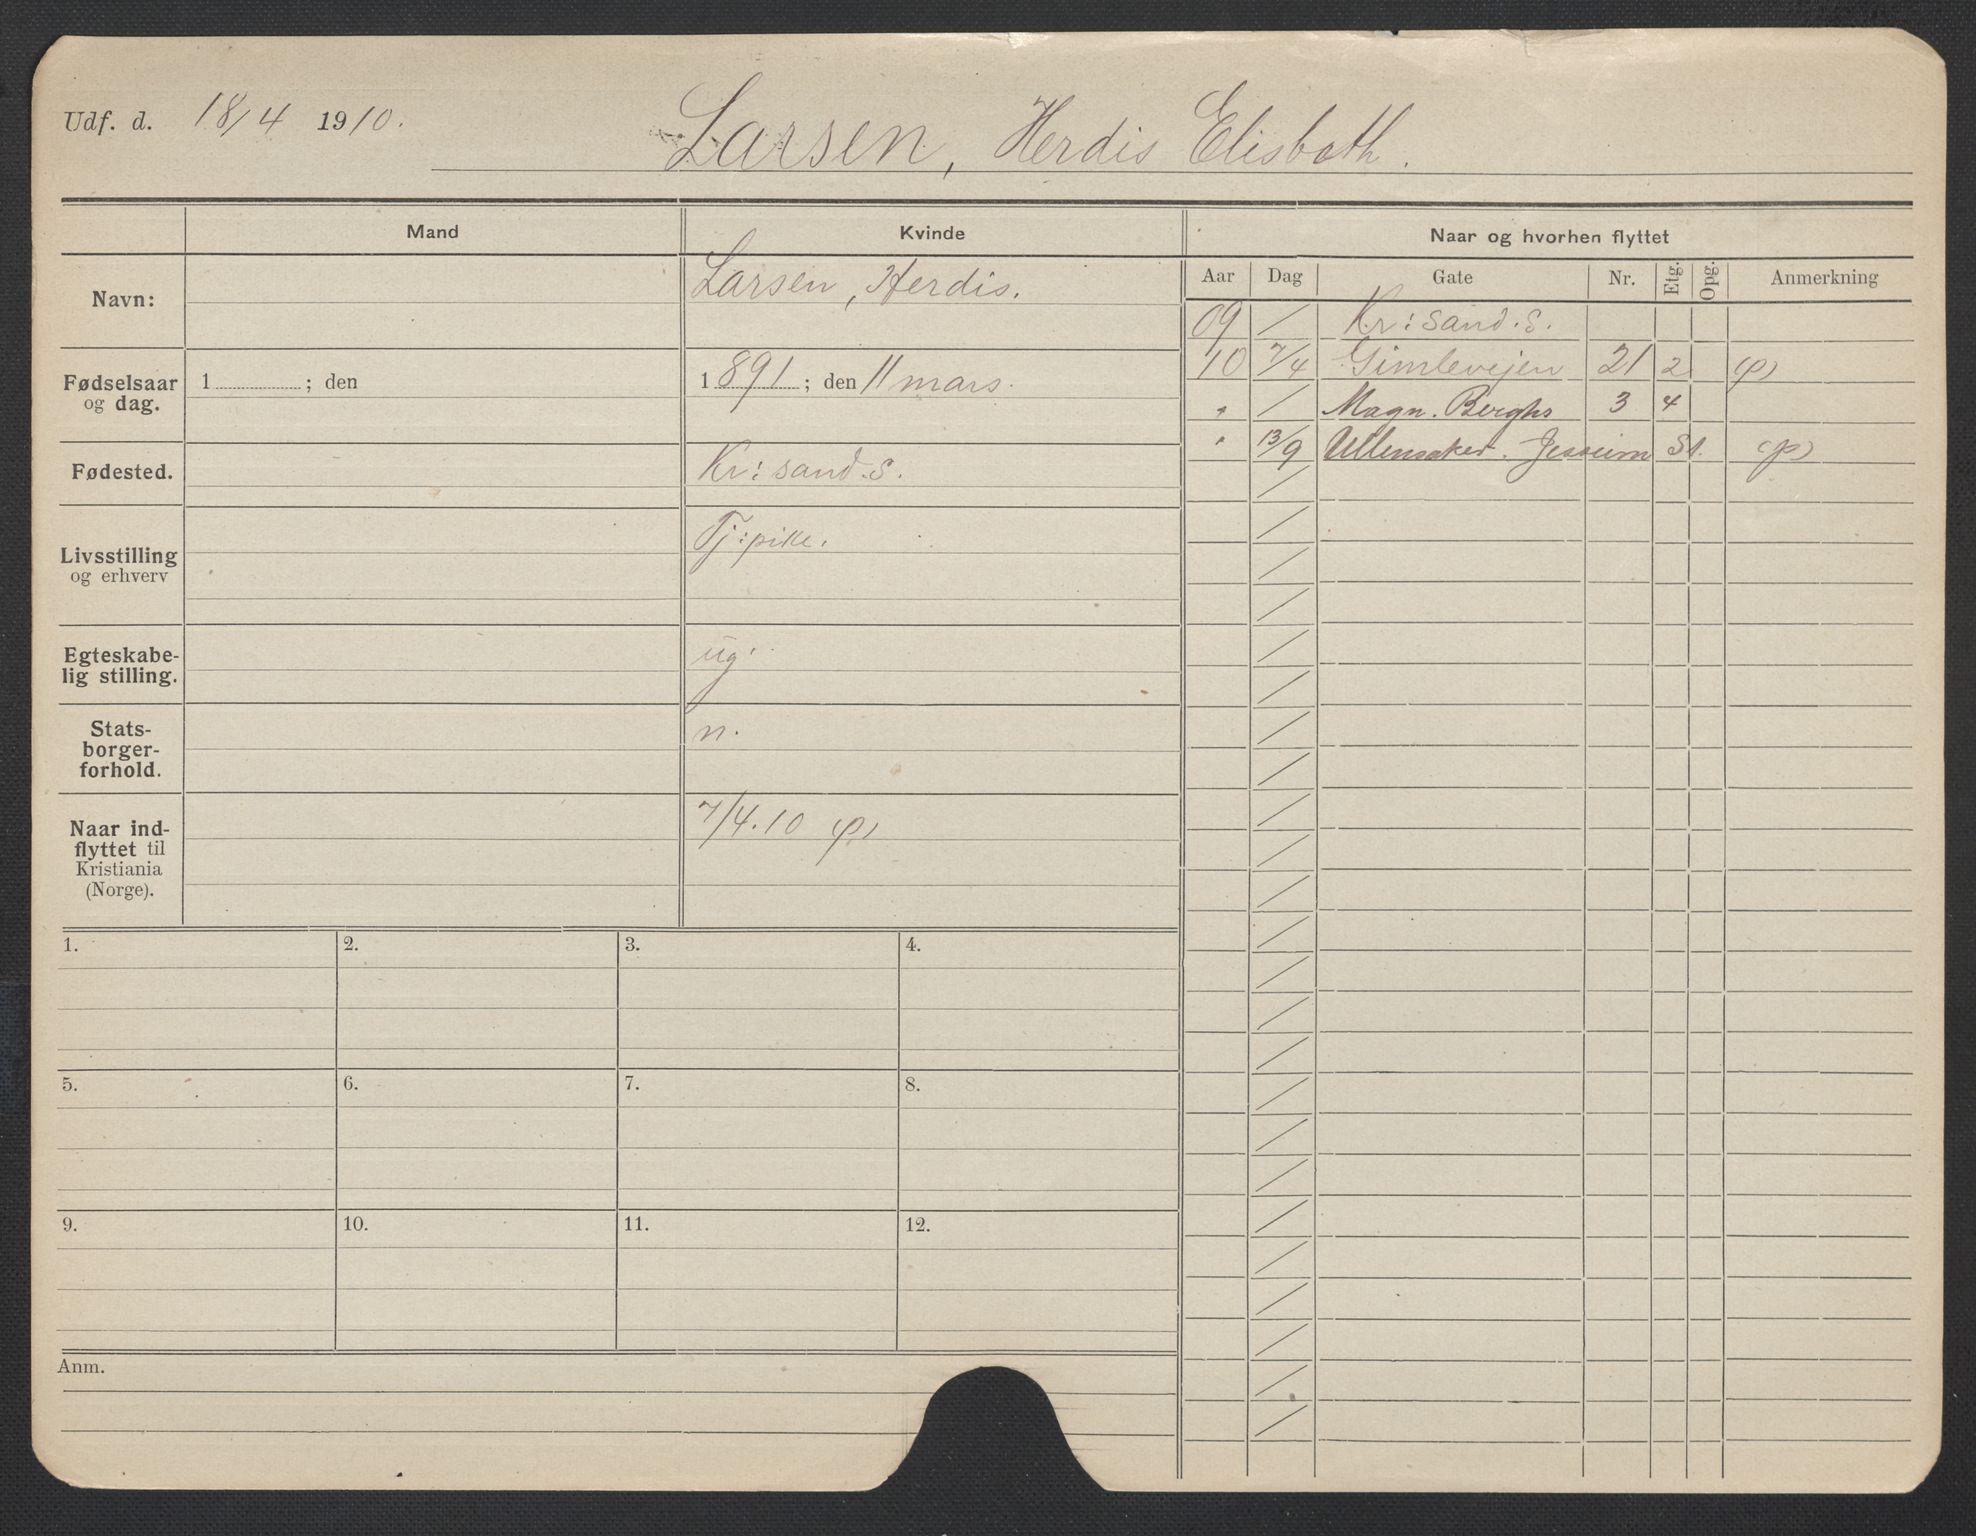 Udf. d. 18/4 1910.
Larsen, Herdis Elisbeth.
Mand Kvinde Naar og hvorhen flyttet
Aar Dag Gate Nr. Etg. Opg. Anmerkning
Navn: Larsen, Herdis.
09 / Kr: sand. S.
10 7/4 Gimlevejen 21 2 (p)
" / Magn. Berghs 3 4
" 13/9 Ullensaker. Jesseim St. (p)
Fødselsaar
og dag.
1 ; den
1891; den 11 mars.
Fødested. Kr: sand. S.
Livsstilling
og erhverv
Tj: pike.
Egteskabe-
lig stilling.
ug.
Stats-
borger-
forhold.
n.
Naar ind-
flyttet til
Kristiania
(Norge).
7/4.10 (p)
1. 2. 3. 4.
5. 6. 7. 8.
9. 10. 11. 12.
Anm.